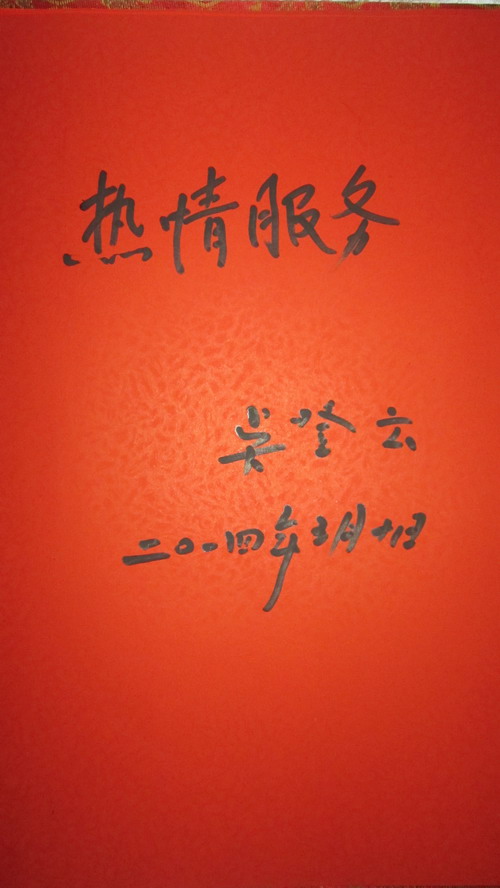 热情服务
吴登云
二〇一四年三月十日